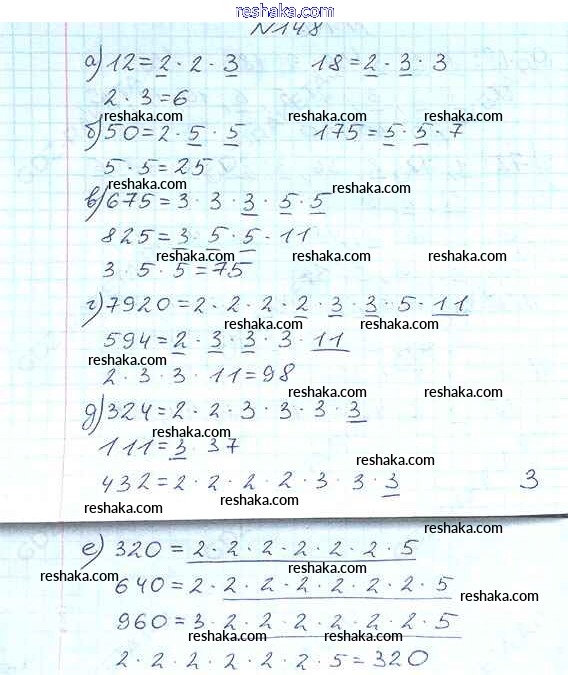 reshaka.com
№148
а) 12=2·2·3 18=2·3·3
2·3=6
reshaka.com reshaka.com
б) 50=2·5·5 175=5·5·7
5·5=25
reshaka.com reshaka.com
в) 675=3·3·3·5·5
825=3·5·5·11
reshaka.com reshaka.com reshaka.com
3·5·5=75
г) 7920=2·2·2·2·3·3·5·11
reshaka.com reshaka.com
594=2·3·3·3·11
reshaka.com
2·3·3·11=98
reshaka.com reshaka.com
д) 324=2·2·3·3·3·3
reshaka.com
111=3·37
reshaka.com
432=2·2·2·2·3·3·3 3
reshaka.com reshaka.com
reshaka.com
е) 320=2·2·2·2·2·2·5
reshaka.com reshaka.com
640=2·2·2·2·2·2·2·5
reshaka.com
960=3·2·2·2·2·2·2·5
reshaka.com reshaka.com
2·2·2·2·2·2·5=320